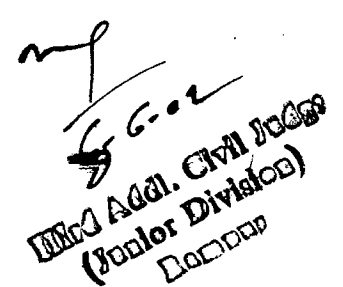 6-6-02
IIIrd Addl. Civil Judge
(Junior Division)